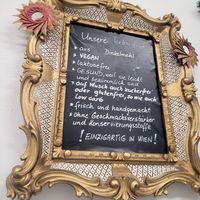 Unsere
* aus Dinkelmehl
* VEGAN
* laktosefrei
* GESUND, weil sie leicht
und bekömmlich sind
* auf Wusch auch zuckerfrei
oder glutenfrei, so wie auch
low carb
* frisch und handgemacht
* ohne Geschmacksverstärker
und Konservierungsstoffe
! EINZIGARTIG in WIEN !